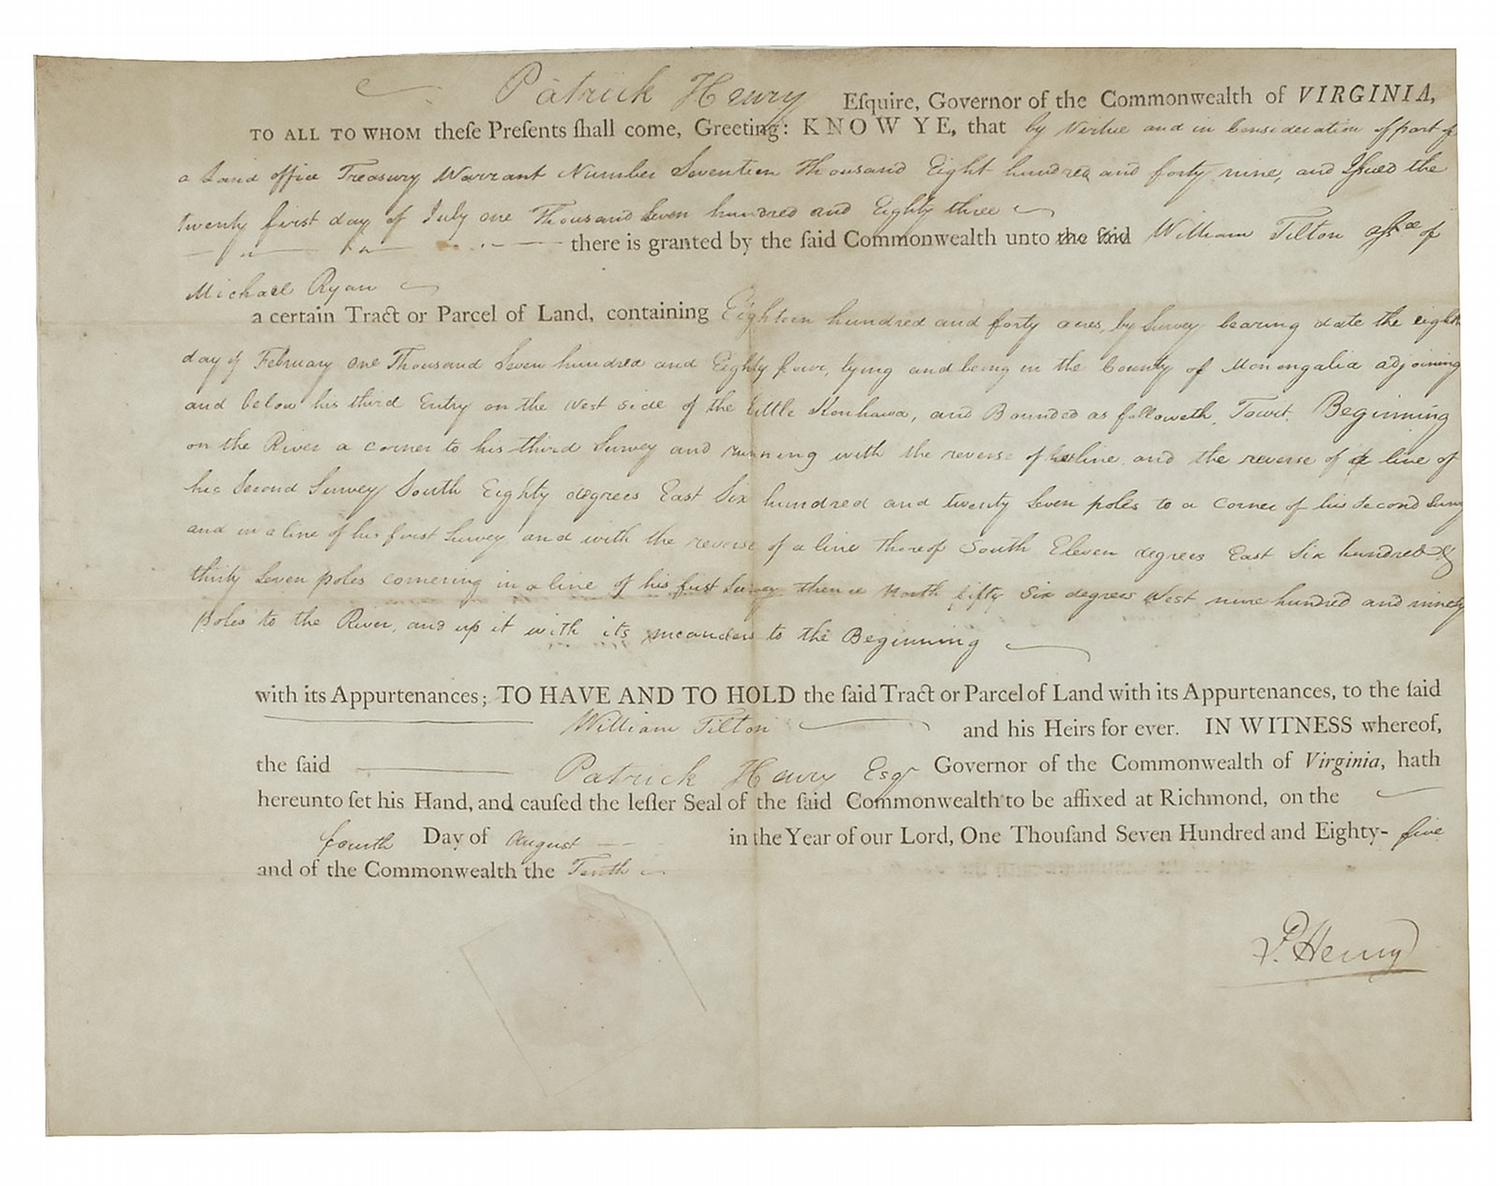 Patrick Henry Eſquire, Governor of the Commonwealth of VIRGINIA,
TO ALL TO WHOM theſe Preſents ſhall come, Greeting: KNOW YE, that by Virtue and in Consideration of part of
a Land office Treasury Warrant Number Seventeen Thousand Eight hundred and forty nine, and Iſsued the
twenty first day of July one Thousand Seven hundred and Eighty three
there is granted by the ſaid Commonwealth unto the ſaid William Tilton aſsee of
Michael Ryan
a certain Tract or Parcel of Land, containing Eighteen hundred and forty acres, by Survey bearing date the eighth
day of February one Thousand Seven hundred and Eighty four, lying and being in the County of Monongalia adjoining
and below his third Entry on the West side of the little Kenhawa, and Bounded as followeth, Towit. Beginning
on the River a corner to his third Survey and running with the reverse of line and the reverse of a line of
his Second Survey South Eighty degrees East Six hundred and twenty Seven poles to a corner of his Second Survey
and in a line of his first Survey and with the reverse of a line thereof South Eleven degrees East Six hundred &
thirty Seven poles cornering in a line of his first Survey thence North fifty Six degrees West nine hundred and ninety
poles to the River, and up it with its meanders to the Beginning
with its Appurtenances; TO HAVE AND TO HOLD the ſaid Tract or Parcel of Land with its Appurtenances, to the ſaid
William Tilton and his Heirs for ever. IN WITNESS whereof,
the ſaid Patrick Henry Esqr Governor of the Commonwealth of Virginia, hath
hereunto ſet his Hand, and cauſed the leſſer Seal of the ſaid Commonwealth to be affixed at Richmond, on the
fourth Day of August in the Year of our Lord, One Thouſand Seven Hundred and Eighty- five
and of the Commonwealth the Tenth
P. Henry